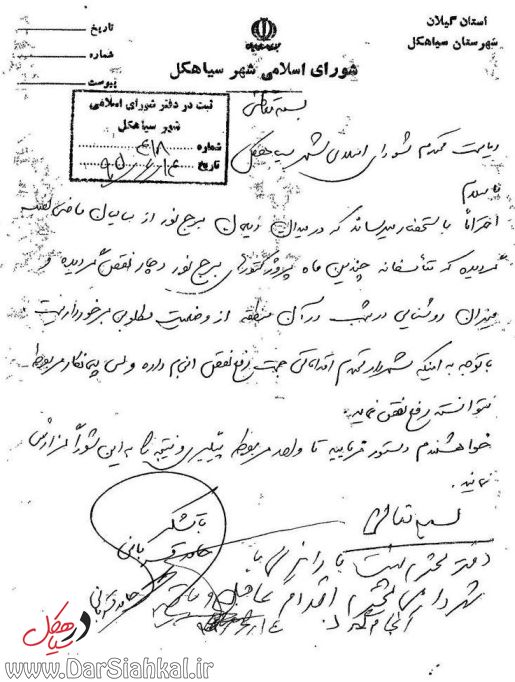 استان گیلان
شهرستان سیاهکل
شورای اسلامی شهر سیاهکل
تاریخ
شماره
پیوست
ثبت در دفتر شورای اسلامی
شهر سیاهکل
شماره ۶۱۸
تاریخ
بسمه تعالی
ریاست محترم شورای اسلامی شهر سیاهکل
با سلام
احتراماً باستحضار میرساند که در میدان برج نور از سالیان ماضی نصب
گردیده که متأسفانه چندین ماه پروژکتورهای برج نور دچار نقص گردیده و
میزان روشنایی در شب در آن منطقه از وضعیت مطلوبی برخوردار نیست
با توجه به اینکه شهردار محترم اقداماتی جهت رفع نقص انجام داده ولی پیمانکار مربوطه
نتوانسته رفع نقص نماید
خواهشمندم دستور فرمایید تا واحد مربوطه پیگیری و نتیجه را به این شورا گزارش
نمایند.
با تشکر
حامد قربانی
بسمه تعالی
دفتر محترم با رایزنی با
شهرداری محترم اقدام عاجل و
انجام گردد.
حامد قربانی
در سیاهکل
www.DarSiahkal.ir